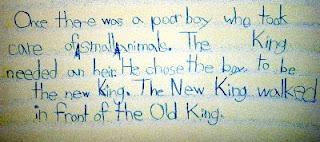 Once there was a poor boy who took
care of small animals. The King
needed an heir. He chose the boy to be
the new King. The New King walked
in front of the Old King.